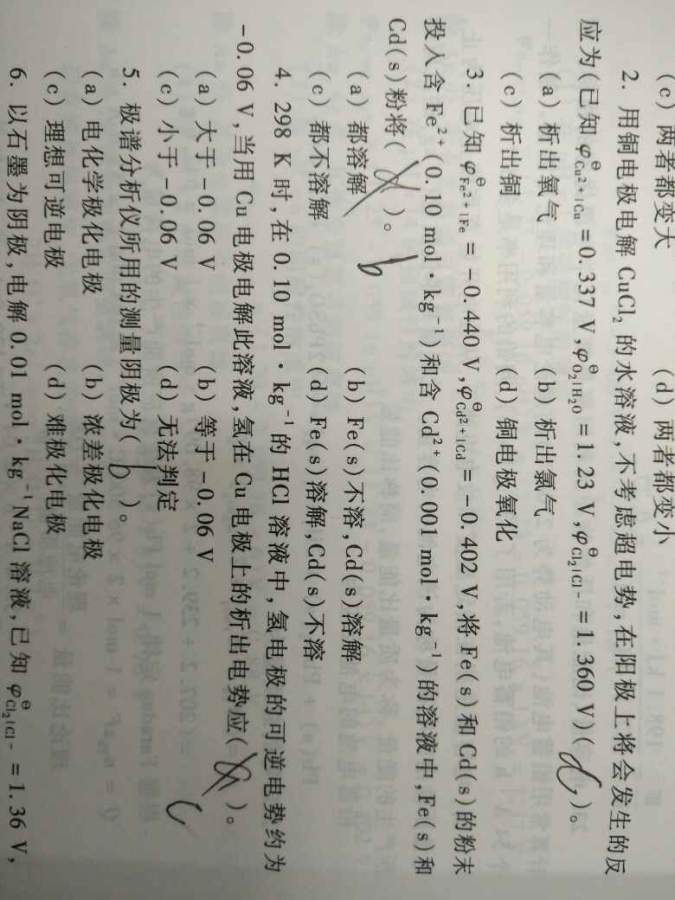 (c) 两者都变大 (d) 两者都变小
2. 用铜电极电解 CuCl₂ 的水溶液,不考虑超电势,在阳极上将会发生的反
应为(已知 φ⊖Cu²⁺|Cu = 0.337 V, φ⊖O₂|H₂O = 1.23 V, φ⊖Cl₂|Cl⁻ = 1.360 V)( d )。
(a) 析出氧气 (b) 析出氯气
(c) 析出铜 (d) 铜电极氧化
3. 已知 φ⊖Fe²⁺|Fe = -0.440 V, φ⊖Cd²⁺|Cd = -0.402 V,将 Fe(s)和 Cd(s)的粉末
投入含 Fe²⁺(0.10 mol·kg⁻¹)和含 Cd²⁺(0.001 mol·kg⁻¹)的溶液中,Fe(s)和
Cd(s)粉将( )。 b
(a) 都溶解 (b) Fe(s)不溶,Cd(s)溶解
(c) 都不溶解 (d) Fe(s)溶解,Cd(s)不溶
4. 298 K 时,在 0.10 mol·kg⁻¹的 HCl 溶液中,氢电极的可逆电势约为
-0.06 V,当用 Cu 电极电解此溶液,氢在 Cu 电极上的析出电势应( )。
(a) 大于-0.06 V (b) 等于-0.06 V c
(c) 小于-0.06 V (d) 无法判定
5. 极谱分析仪所用的测量阴极为( b )。
(a) 电化学极化电极 (b) 浓差极化电极
(c) 理想可逆电极 (d) 难极化电极
6. 以石墨为阴极,电解 0.01 mol·kg⁻¹ NaCl 溶液,已知 φ⊖Cl₂|Cl⁻ = 1.36 V,